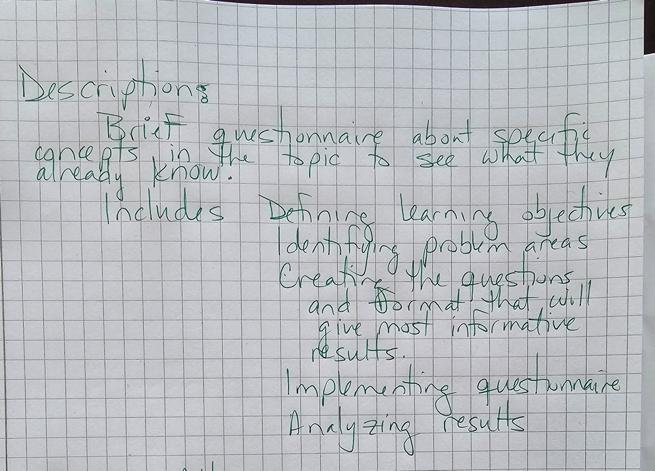 Description:
Brief questionnaire about specific
concepts in the topic to see what they
already know.
Includes Defining learning objectives
Identifying problem areas
Creating the questions
and format that will
give most informative
results.
Implementing questionnaire
Analyzing results